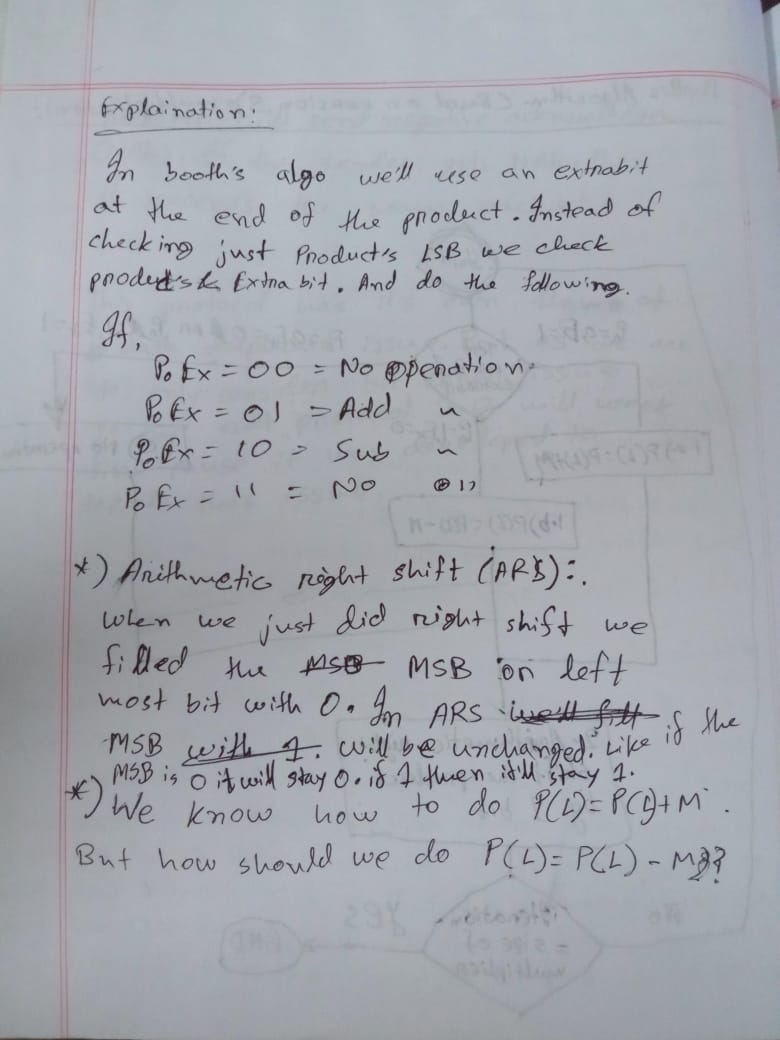 Explaination:
In booth's algo we'll use an extrabit
at the end of the product. Instead of
checking just Product's LSB we check
product's & Extra bit. And do the following.
If,
P₀ Ex = 00 = No operation.
P₀ Ex = 01 = Add "
P₀ Ex = 10 = Sub "
P₀ Ex = 11 = No "
*) Arithmetic right shift (ARS):
When we just did right shift we
filled the MSB or left
most bit with 0. In ARS
MSB will be unchanged. Like if the
MSB is 0 it will stay 0. if 1 then it'll stay 1.
*) We know how to do P(L)= P(L)+M.
But how should we do P(L)= P(L) - M??